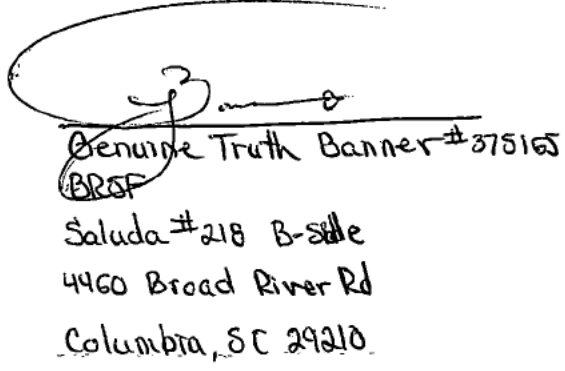 Genuine Truth Banner #375165
BRSF
Saluda #218 B-Side
4460 Broad River Rd
Columbia, SC 29210